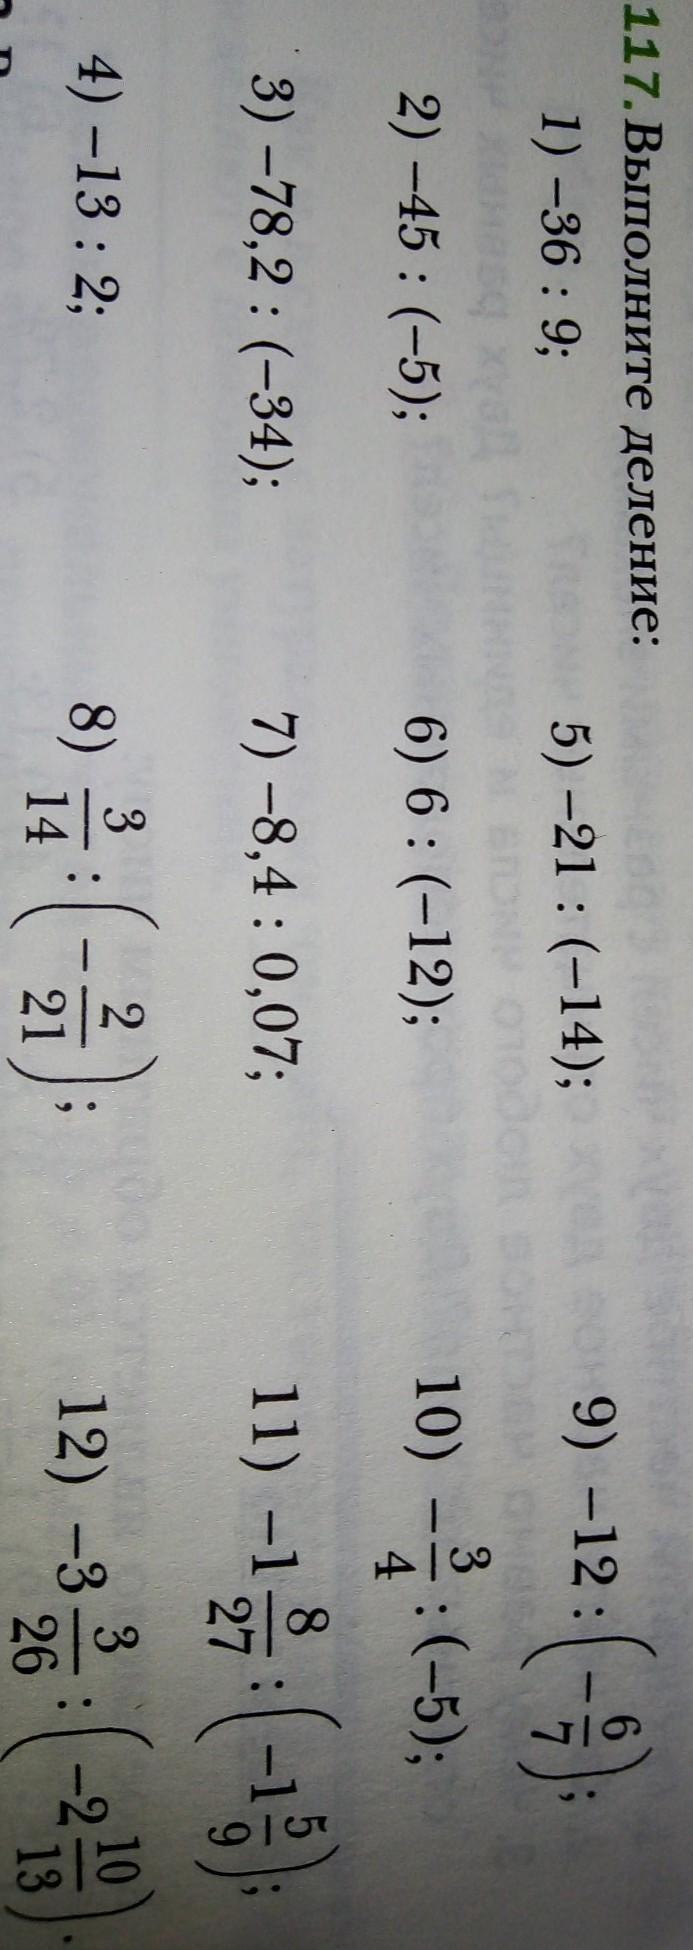 117. Выполните деление:
1) −36 : 9;
2) −45 : (−5);
3) −78,2 : (−34);
4) −13 : 2;
5) −21 : (−14);
6) 6 : (−12);
7) −8,4 : 0,07;
8) 3/14 : (−2/21);
9) −12 : (−6/7);
10) −3/4 : (−5);
11) −1 8/27 : (−1 5/9);
12) −3 3/26 : (−2 10/13).